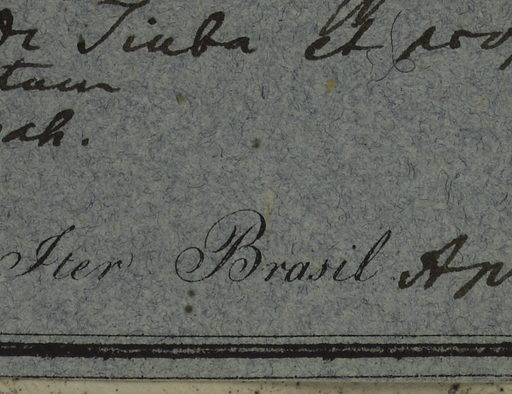 Tiuba et prop
tum
Iter Brasil Ap